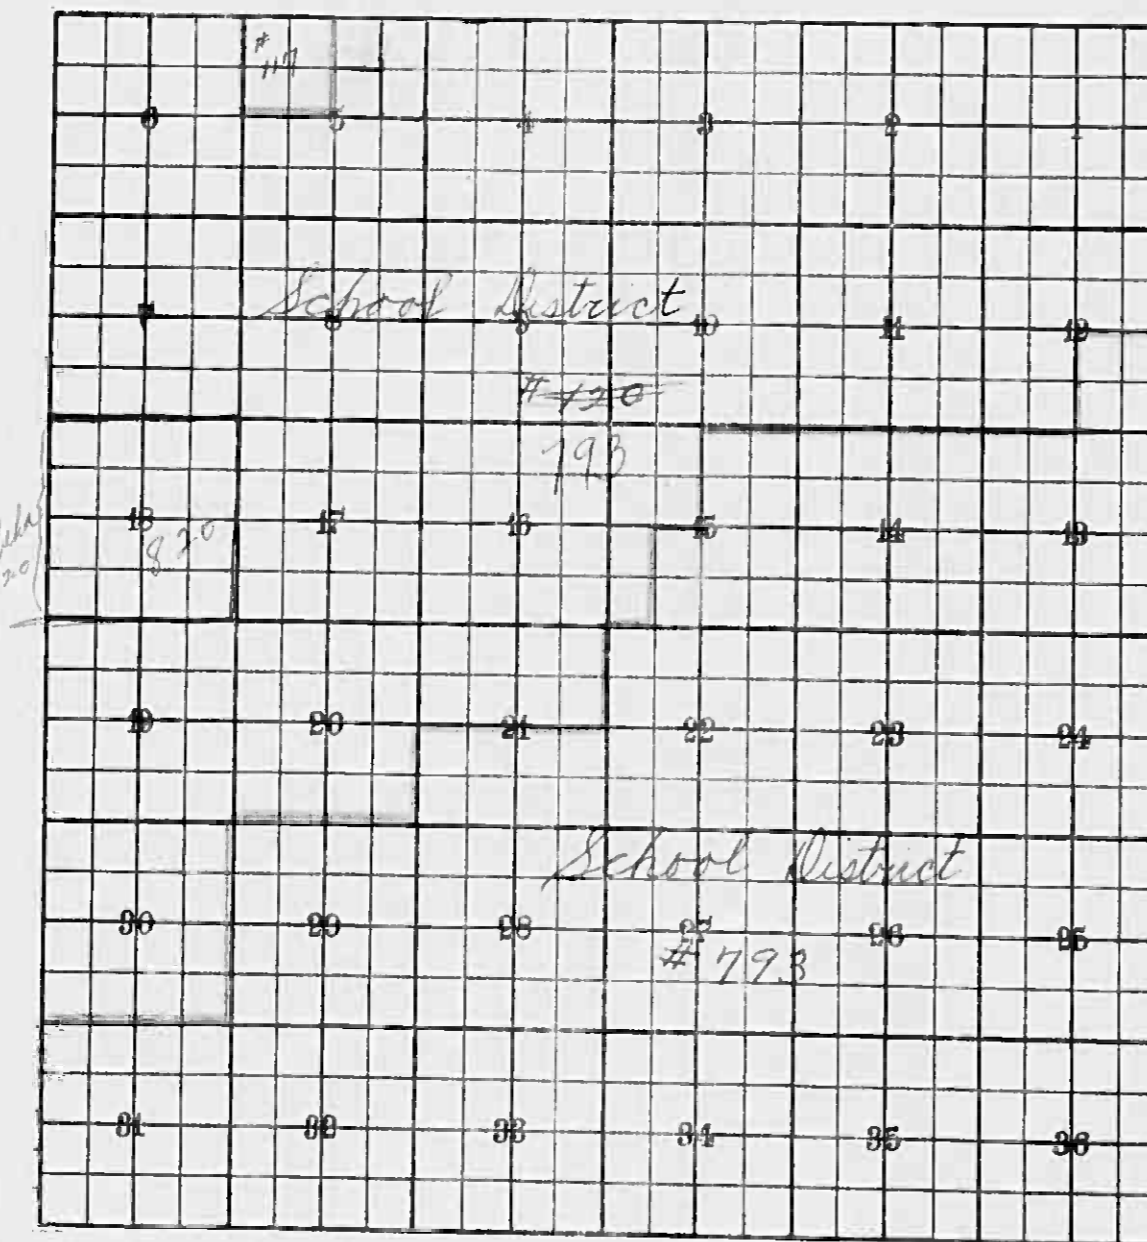 # 117
6 5 4 3 2 1
School District
7 8 9 10 11 12
# 120
793
18 17 16 15 14 13
820
19 20 21 22 23 24
School District
30 29 28 27 26 25
# 793
31 32 33 34 35 36